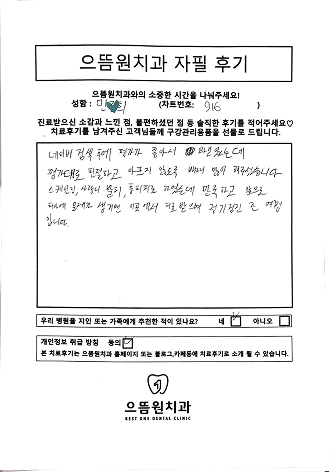 으뜸원치과 자필 후기
으뜸원치과와의 소중한 시간을 나눠주세요!
성함 : 민 (차트번호: 916 )
진료받으신 소감과 느낀 점, 불편하셨던 점 등 솔직한 후기를 적어주세요♡
치료후기를 남겨주신 고객님들께 구강관리용품을 선물로 드립니다.
네이버 검색 후에 평가가 좋아서 와보았는데
평가대로 친절하고 아프지 않도록 배려 많이 해주셨습니다
스케일링, 사랑니 발치, 충치치료 받았는데 만족하고 앞으로
치아에 문제가 생기면 이곳에서 치료받으며 정기검진 올 예정
입니다.
우리 병원을 지인 또는 가족에게 추천한 적이 있나요? 네 아니오
개인정보 취급 방침 동의
본 치료후기는 으뜸원치과 홈페이지 또는 블로그,카페등에 치료후기로 소개 될 수 있습니다.
으뜸원치과
BEST ONE DENTAL CLINIC